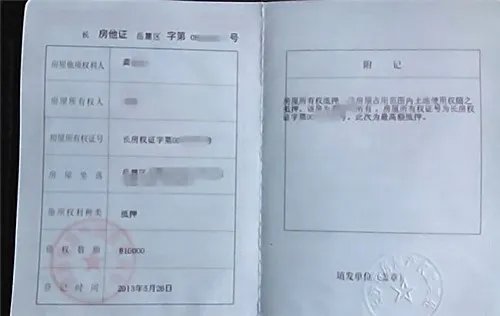 长 房他证 岳麓区 字第 号
房屋他项权利人
房屋所有权人
房屋所有权证号 长房权证字第00
房屋坐落 岳麓区
他项权利种类 抵押
债权数额
登记时间 2013年5月26日
附记
房屋所有权抵押, 房屋占用范围内土地使用权随之
抵押。该房为 所有, 房屋所有权证号为长房权
证字第00 号, 此次为最高额抵押。
填发单位(盖章)